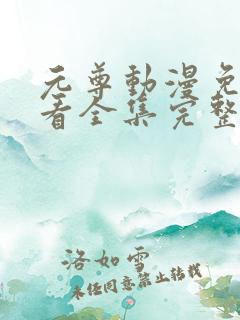 元尊動漫免
看全集完整
洛如雪
未经同意禁止转载